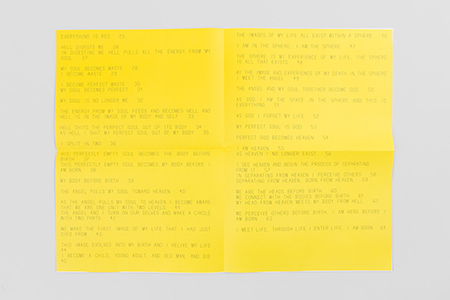 EVERYTHING IS RED 35
HELL DIGESTS ME 34
IN DIGESTING ME HELL PULLS ALL THE ENERGY FROM MY
SOUL 35
MY SOUL BECOMES WASTE 35
I BECOME WASTE
I BECOME PERFECT 35
MY SOUL BECOMES PERFECT
MY SOUL IS NO LONGER ME
THE ENERGY FROM MY SOUL FEEDS AND BECOMES HELL AND
HELL IS IN THE IMAGE OF MY BODY AND SELF
HELL SHITS THE PERFECT SOUL OUT OF ITS BODY
AS HELL I SHIT MY PERFECT SOUL OUT OF MY BODY
I SPLIT IN TWO
THE PERFECTLY EMPTY SOUL BECOMES THE BODY BEFORE
BIRTH
THE PERFECTLY EMPTY SOUL BECOMES MY BODY BEFORE I
AM BORN
MY BODY BEFORE BIRTH
THE ANGEL PULLS MY SOUL TOWARD HEAVEN
AS THE ANGEL PULLS MY SOUL TO HEAVEN I BECOME AWARE
THAT WE ARE ONE UNIT WITH TWO LEVELS
THE ANGEL AND I TURN ON OUR SELVES AND MAKE A CIRCLE
WITH TWO PARTS
WE MAKE THE FIRST IMAGE OF MY LIFE THAT I HAD JUST
DIED FROM
THIS IMAGE EVOLVES INTO MY BIRTH AND I RELIVE MY LIFE
I BECOME A CHILD, YOUNG ADULT, AND OLD MAN, AND DIE
THE IMAGES OF MY LIFE ALL EXIST WITHIN A SPHERE
I AM IN THE SPHERE, I AM THE SPHERE
THE SPHERE IS MY EXPERIENCE OF MY LIFE, THE SPHERE
IS ALL THAT EXISTS
AT THE IMAGE AND EXPERIENCE OF MY DEATH IN THE SPHERE
I MEET THE ANGEL
THE ANGEL AND MY SOUL TOGETHER BECOME GOD
AS GOD I AM THE SPACE IN THE SPHERE AND THIS IS
EVERYTHING
AS GOD I FORGET MY LIFE 52
MY PERFECT SOUL IS GOD 53
GOD BECOMES MY PERFECT SOUL 54
I AM HEAVEN 55
AS HEAVEN I NO LONGER EXIST
I SEE HEAVEN AND BEGIN THE PROCESS OF SEPARATING
FROM IT
IN SEPARATING FROM HEAVEN I PERCEIVE OTHERS
SEPARATING FROM HEAVEN, BORN FROM HEAVEN
WE ARE THE HEADS BEFORE BIRTH
WE CONNECT WITH THE BODIES BEFORE BIRTH
MY HEAD FROM HEAVEN MEETS MY BODY FROM HELL
WE PERCEIVE OTHERS BEFORE BIRTH, I AM HERE BEFORE I
AM BORN
I MEET LIFE, THROUGH LIFE I ENTER LIFE, I AM BORN